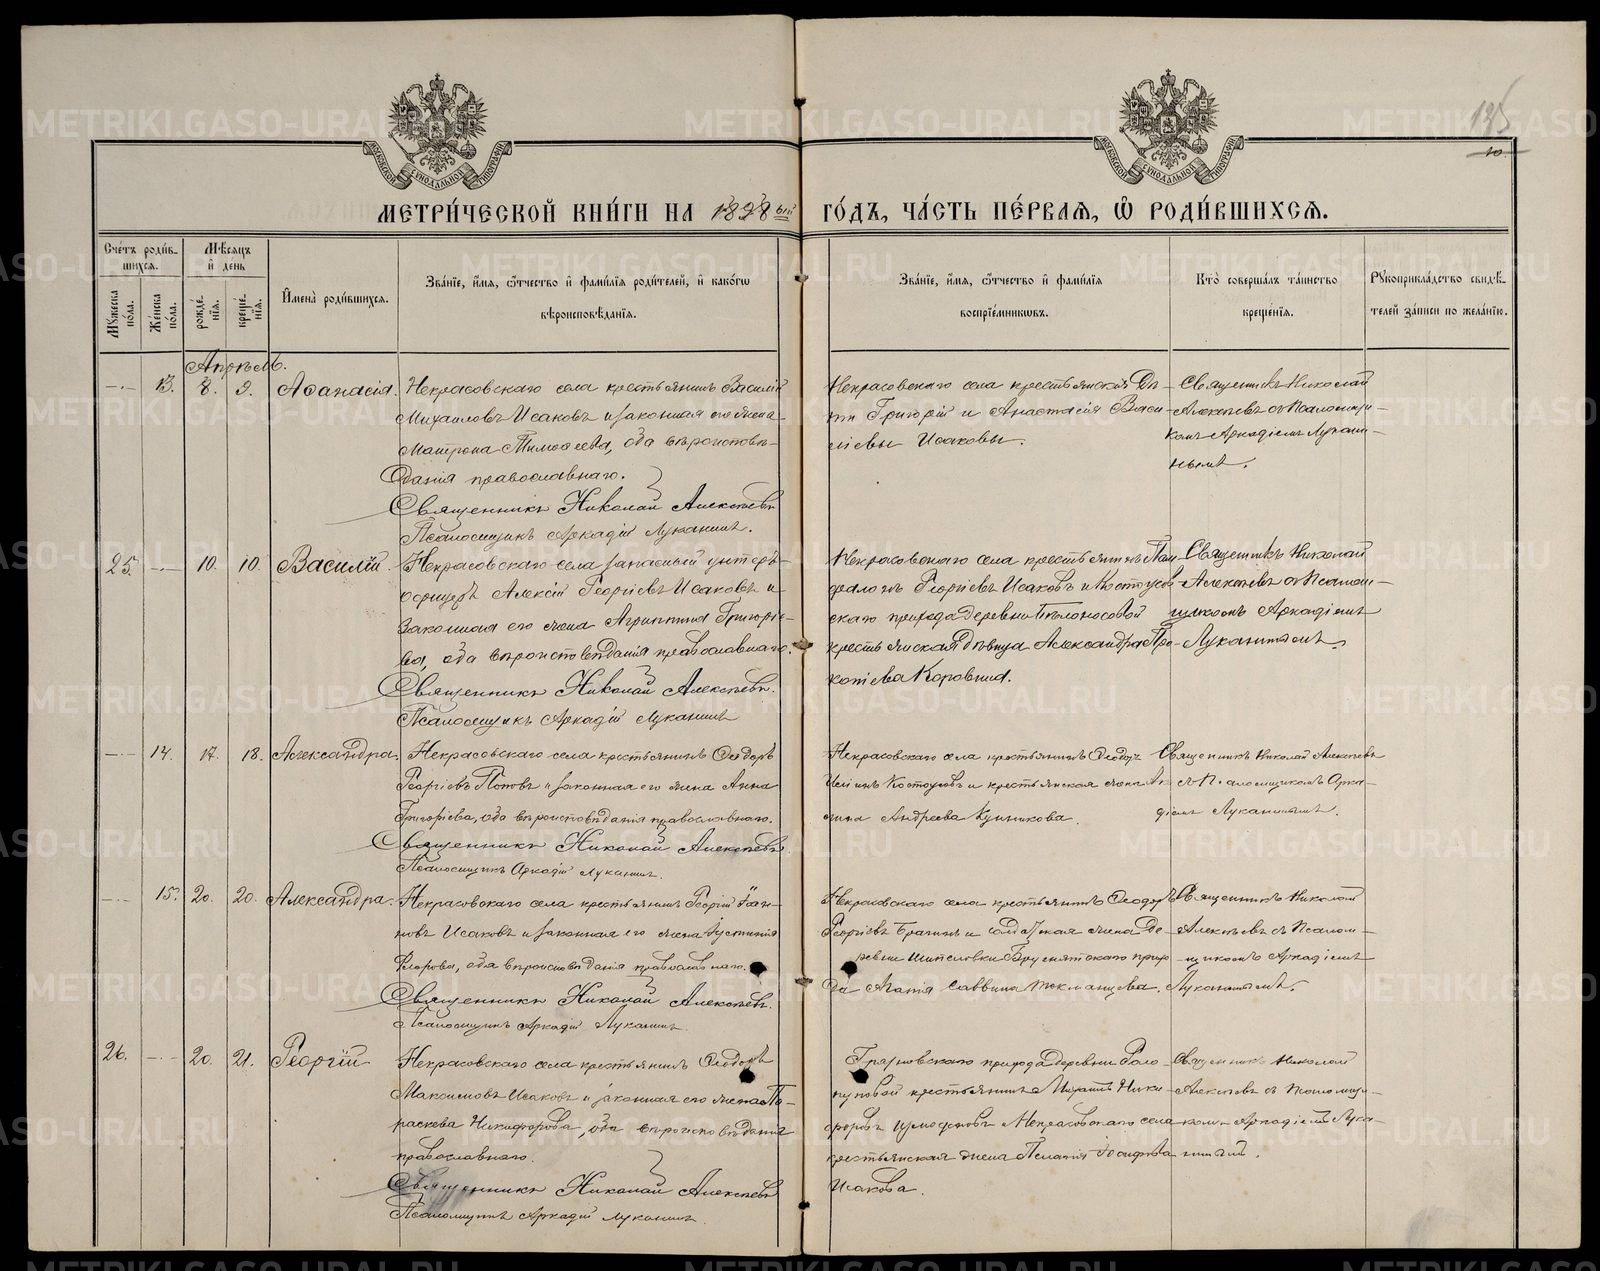 135
10
МЕТРИ́ЧЕСКОЙ КНИ́ГИ НА 1898 ый ГО́ДЪ, ЧА́СТЬ ПЕ́РВАЯ, Ѿ РОДИ́ВШИХСЯ.
Сче́тъ роди́вшихся.
Мѣ́сяцъ и҆ де́нь
Мꙋ́жеска по́ла.
Же́нска по́ла.
рожде́нїѧ.
креще́нїѧ.
И҆мена̀ роди́вшихсѧ.
Зва́нїе, и҆́мѧ, ѻ҆́тчество и҆ фами́лїѧ роди́телей, и҆ како́гѡ
вѣроисповѣ́данїѧ.
Зва́нїе, и҆́мѧ, ѻ҆́тчество и҆ фами́лїѧ
воспрїе́мникѡвъ.
Кто̀ соверша́лъ та́инство
креще́нїѧ.
Рꙋкоприкла́дство свидѣ́телей за́писи по жела́нїю.
Апрѣль.
13. 8. 9. Аѳанасія.
Некрасовскаго села крестьянинъ Василій
Михаиловъ Исаковъ и законная его жена
Матрона Тимоѳеева, оба вѣроисповѣ-
данія православнаго.
Священникъ Николай Алексѣевъ
Псаломщикъ Аркадій Луканинъ.
Некрасовскаго села крестьянскія Дѣ-
ти Григорій и Анастасія Васи-
лievы Исаковы.
Священникъ Николай
Алексѣевъ съ Псаломщи-
комъ Аркадіемъ Лукани-
нымъ.
25. 10. 10. Василій.
Некрасовскаго села запасный унтеръ-
офицеръ Алексій Георгіевъ Исаковъ и
законная его жена Агриппина Григорье-
ва, оба вѣроисповѣданія православнаго.
Священникъ Николай Алексѣевъ.
Псаломщикъ Аркадій Луканинъ
Некрасовскаго села крестьянинъ Пан-
филъ Георгіевъ Исаковъ и Костоусов-
скаго прихода деревни Бѣлоносовой
крестьянская дѣвица Александра Про-
копіева Коровина.
Священникъ Николай
Алексѣевъ съ Псалом-
щикомъ Аркадіемъ
Луканинымъ.
14. 17. 18. Александра.
Некрасовскаго села крестьянинъ Ѳеодоръ
Георгіевъ Поповъ и законная его жена Анна
Григорьева, оба вѣроисповѣданія православнаго.
Священникъ Николай Алексѣевъ.
Псаломщикъ Аркадій Луканинъ.
Некрасовскаго села крестьянинъ Ѳеодоръ
Костоусовъ и крестьянская жена
Андреева Куликова.
Священникъ Николай Алексѣевъ
съ Псаломщикомъ Арка-
діемъ Луканинымъ.
15. 20. 20. Александра.
Некрасовскаго села крестьянинъ Георгій Іоан-
новъ Исаковъ и законная его жена Іустинія
Ѳедорова, оба вѣроисповѣданія православнаго.
Священникъ Николай Алексѣевъ.
Псаломщикъ Аркадій Луканинъ.
Некрасовскаго села крестьянинъ Ѳеодоръ
Георгіевъ Брагинъ и солдатская жена Де-
ревни Шипеловки Бруснятскаго прихо-
да Агапія Саввина Токманцева.
Священникъ Николай
Алексѣевъ съ Псалом-
щикомъ Аркадіемъ
Луканинымъ.
26. 20. 21. Георгій
Некрасовскаго села крестьянинъ Ѳеодоръ
Максимовъ Исаковъ и законная его жена Па-
раскева Никифорова, оба вѣроисповѣданія
православнаго.
Священникъ Николай Алексѣевъ
Псаломщикъ Аркадій Луканинъ.
Грязновскаго прихода деревни
крестьянинъ Михаилъ Ники-
форовъ Измоденовъ и Некрасовскаго села
крестьянская жена Пелагія Іосифова
Исакова.
Священникъ Николай
Алексѣевъ съ Псаломщи-
комъ Аркадіемъ Лука-
нинымъ.
METRIKI.GASO-URAL.RU